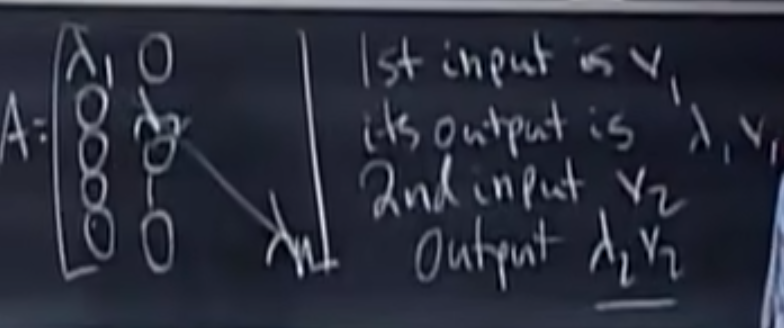 A = [λ₁ 0
0 λ₂
0 0
0 |
0 0 λₙ]
1st input is v₁
its output is λ₁v₁
2nd input v₂
output λ₂v₂